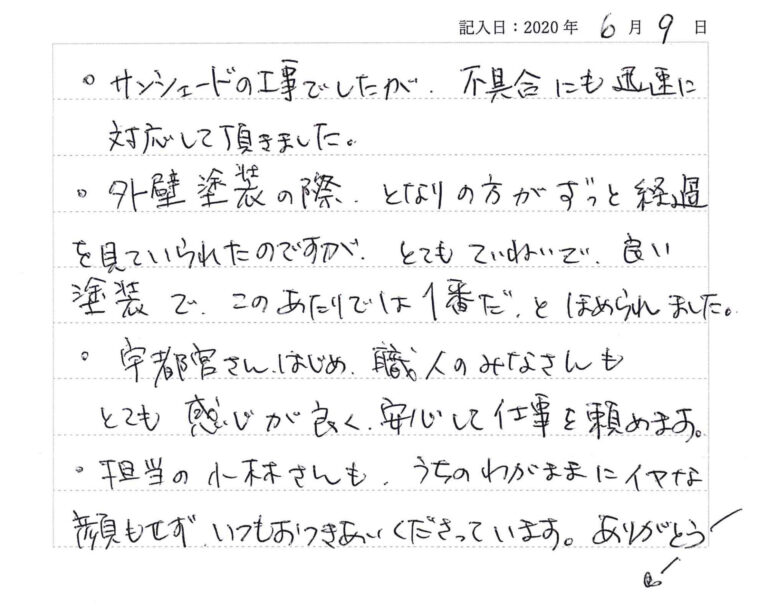 記入日：2020年 6月 9日
。サンシェードの工事でしたが、不具合にも迅速に
対応して頂きました。
。外壁塗装の際、となりの方がずっと経過
を見ていられたのですが、とてもていねいで、良い
塗装で、このあたりでは1番だ、とほめられました。
。宇都宮さん、はじめ、職人のみなさんも
とても感じが良く、安心して仕事を頼めます。
・担当の小林さんも、うちのわがままにイヤな
顔もせず、いつもおつきあいくださっています。ありがとう